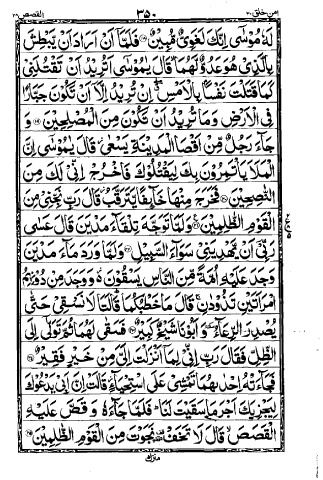 القصص ٢٨ ٣٥٠ امن خلق ٢٠
لَهٗ مُوْسٰۤی اِنَّكَ لَغَوِیٌّ مُّبِیْنٌ ۝ فَلَمَّاۤ اَنْ اَرَادَ اَنْ یَّبْطِشَ
بِالَّذِیْ هُوَ عَدُوٌّ لَّهُمَا ۙ قَالَ یٰمُوْسٰۤی اَتُرِیْدُ اَنْ تَقْتُلَنِیْ
كَمَا قَتَلْتَ نَفْسًۢا بِالْاَمْسِ ۖ اِنْ تُرِیْدُ اِلَّاۤ اَنْ تَكُوْنَ جَبَّارًا
فِی الْاَرْضِ وَمَا تُرِیْدُ اَنْ تَكُوْنَ مِنَ الْمُصْلِحِیْنَ ۝۱۹ وَ
جَآءَ رَجُلٌ مِّنْ اَقْصَا الْمَدِیْنَةِ یَسْعٰی ؗ قَالَ یٰمُوْسٰۤی اِنَّ
الْمَلَاَ یَاْتَمِرُوْنَ بِكَ لِیَقْتُلُوْكَ فَاخْرُجْ اِنِّیْ لَكَ مِنَ
النّٰصِحِیْنَ ۝ فَخَرَجَ مِنْهَا خَآئِفًا یَّتَرَقَّبُ ؗ قَالَ رَبِّ نَجِّنِیْ مِنَ
الْقَوْمِ الظّٰلِمِیْنَ ۝ وَلَمَّا تَوَجَّهَ تِلْقَآءَ مَدْیَنَ قَالَ عَسٰی
رَبِّیْۤ اَنْ یَّهْدِیَنِیْ سَوَآءَ السَّبِیْلِ ۝ وَلَمَّا وَرَدَ مَآءَ مَدْیَنَ
وَجَدَ عَلَیْهِ اُمَّةً مِّنَ النَّاسِ یَسْقُوْنَ ؗ وَوَجَدَ مِنْ دُوْنِهِمُ
امْرَاَتَیْنِ تَذُوْدٰنِ ۚ قَالَ مَا خَطْبُكُمَا ؕ قَالَتَا لَا نَسْقِیْ حَتّٰی
یُصْدِرَ الرِّعَآءُ ٚ وَاَبُوْنَا شَیْخٌ كَبِیْرٌ ۝ فَسَقٰی لَهُمَا ثُمَّ تَوَلّٰۤی اِلَی
الظِّلِّ فَقَالَ رَبِّ اِنِّیْ لِمَاۤ اَنْزَلْتَ اِلَیَّ مِنْ خَیْرٍ فَقِیْرٌ ۝
فَجَآءَتْهُ اِحْدٰىهُمَا تَمْشِیْ عَلَی اسْتِحْیَآءٍ ؗ قَالَتْ اِنَّ اَبِیْ یَدْعُوْكَ
لِیَجْزِیَكَ اَجْرَ مَا سَقَیْتَ لَنَا ؕ فَلَمَّا جَآءَهٗ وَقَصَّ عَلَیْهِ
الْقَصَصَ ۙ قَالَ لَا تَخَفْ ۫ نَجَوْتَ مِنَ الْقَوْمِ الظّٰلِمِیْنَ ۝